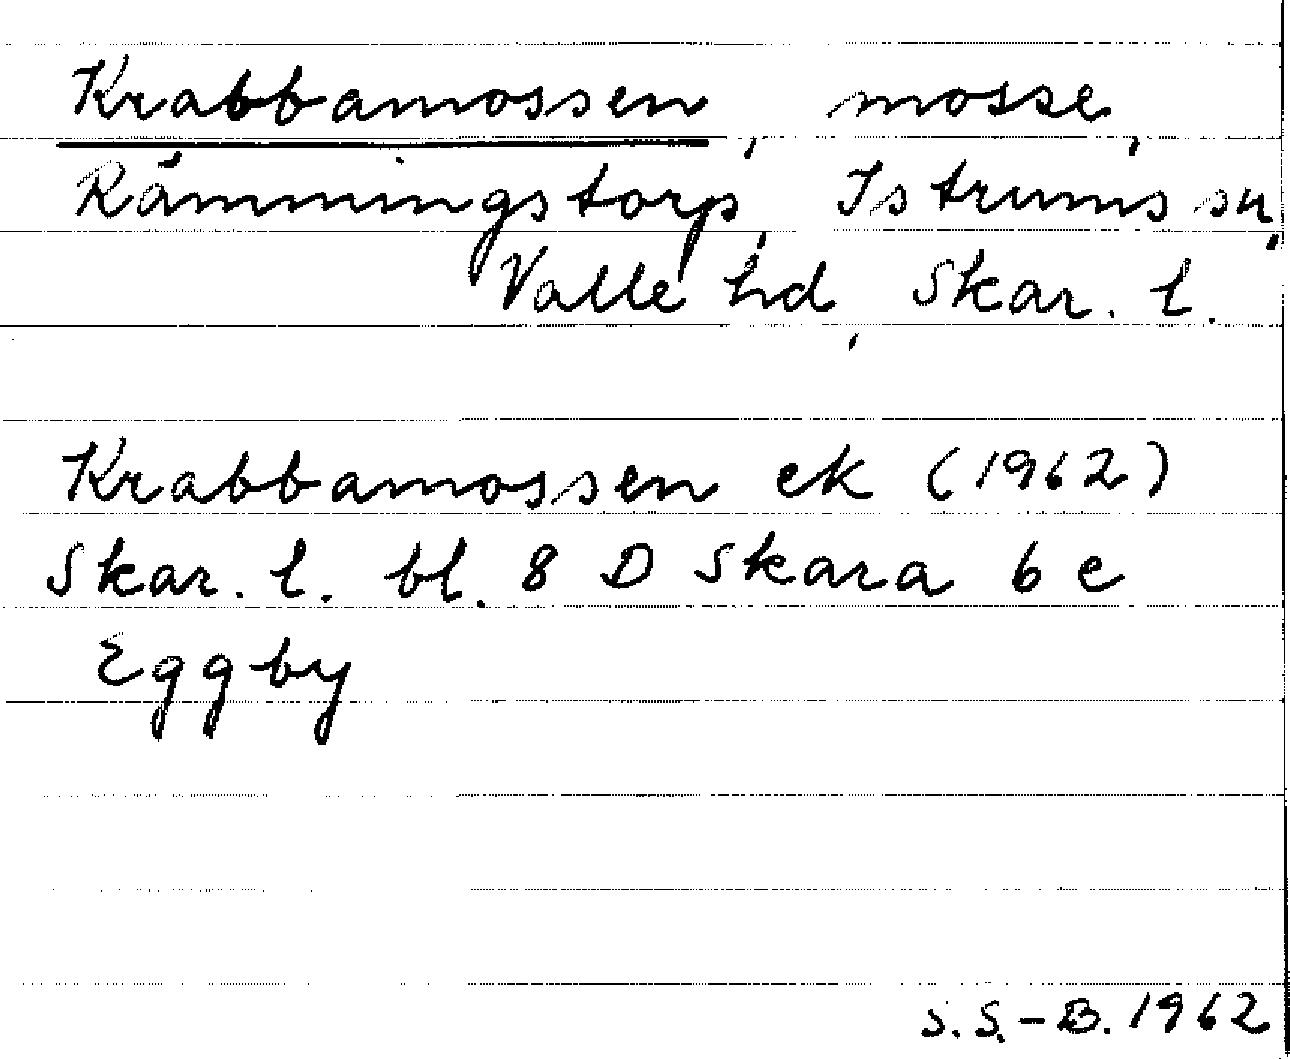 Krabbamossen, mosse,
Rämmingstorp, Istrums sn,
Valle hd, Skar. l.
Krabbamossen ek (1962)
Skar. l. bl. 8 D Skara 6 e
Eggby
S.S.-B. 1962